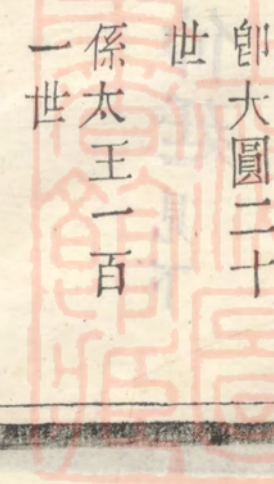 卽大圓二十
世
係太王一百
一世